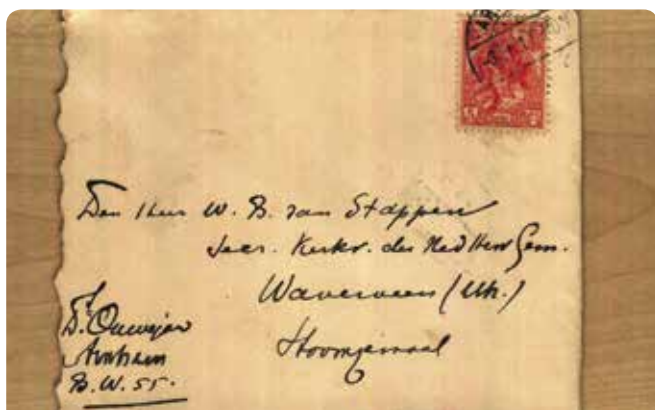 Den Heer W. B. van Stappen
Secr. Kerkr. der Ned Herv Gem.
Waverveen (Utr.)
Stoomgemaal
Arnhem
B.W. 55.